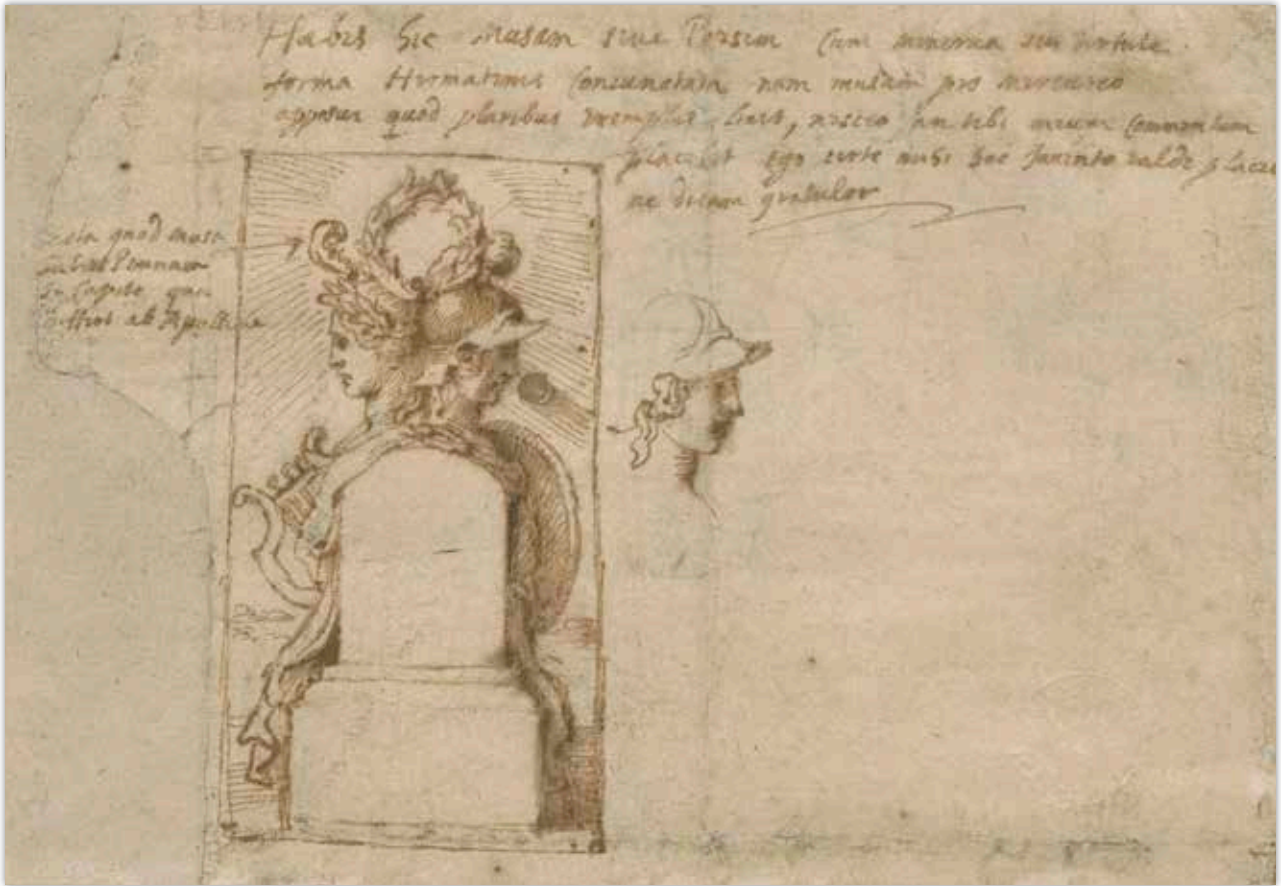 Habes hic Musam sive Poesim Cum Minerva seu virtute
forma Hermatenis Coniunctam nam musam pro mercurio
apposui quod pluribus exemplis licet, nescio an tibi meum Commentum
placebit Ego certe mihi hoc Invento valde place
ne dicam gratulor
quod musa
habeat Pennam
in Capite qua
differt ab Apolline